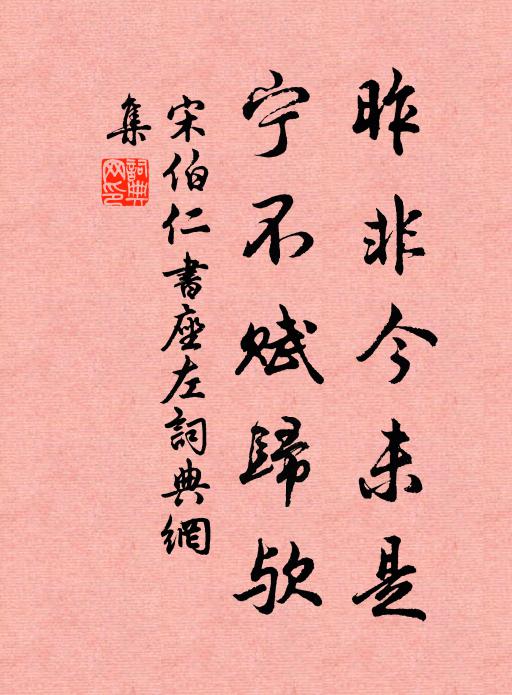 昨非今未是
宁不赋歸欤
宋伯仁書座左詞典網
集
詞典網印